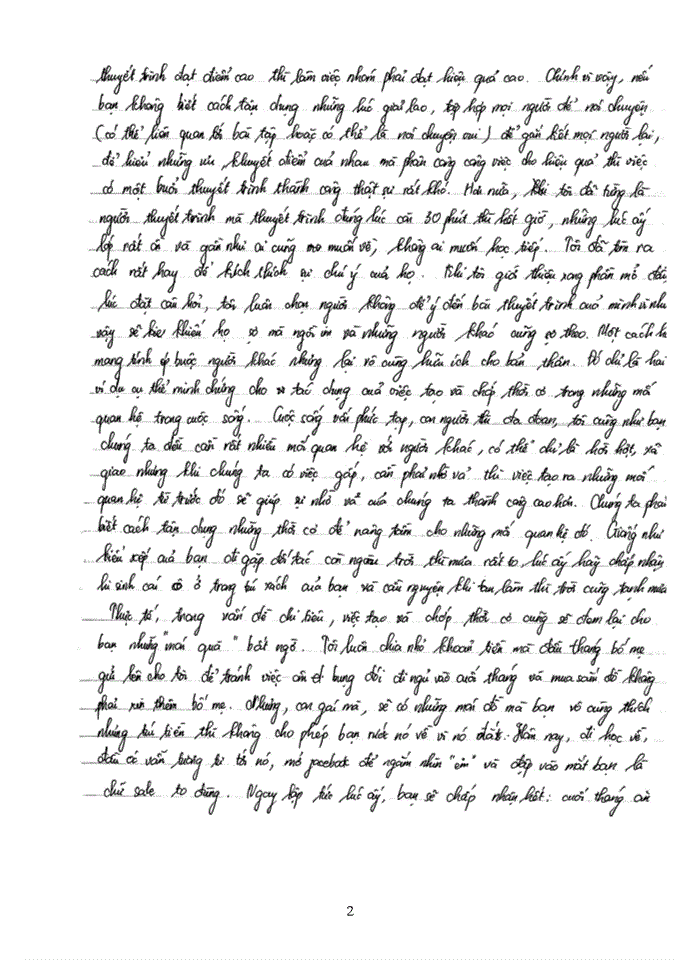 thuyết trình đạt điểm cao thì làm việc nhóm phải đạt hiệu quả cao. Chính vì vậy, nếu
bạn không biết cách tận dụng những lúc giải lao, tập hợp mọi người để nói chuyện
(có thể liên quan tới bài tập hoặc có thể là nói chuyện vui) để gắn kết mọi người lại,
để hiểu những ưu, khuyết điểm của nhau mà phân công công việc cho hiệu quả thì việc
có một buổi thuyết trình thành công thật sự rất khó. Hơn nữa, khi tôi đã từng là
người thuyết trình mà thuyết trình đúng lúc còn 30 phút thì hết giờ, những lúc ấy
lớp rất ồn và gần như ai cũng muốn về, không ai muốn học tiếp. Tôi đã tìm ra
cách rất hay để kích thích sự chú ý của họ. Khi tôi giới thiệu xong phần mở đầu
lúc đặt câu hỏi, tôi luôn chọn người không để ý đến bài thuyết trình của mình vì như
vậy sẽ khiến họ sợ mà ngồi im và những người khác cũng sợ theo. Một cách
mang tính ép buộc người khác nhưng lại vô cùng hữu ích cho bản thân. Đó chỉ là hai
ví dụ cụ thể minh chứng cho tác dụng của việc tạo và chớp thời cơ trong những mối
quan hệ trong cuộc sống. Cuộc sống vốn phức tạp, con người thì đa đoan, tôi cũng như bạn
chúng ta đều cần rất nhiều mối quan hệ với người khác, có thể chỉ là hời hợt, xã
giao nhưng khi chúng ta có việc gấp, cần phải nhờ vả thì việc tạo ra những mối
quan hệ từ trước đó sẽ giúp sự nhờ vả của chúng ta thành công cao hơn. Chúng ta phải
biết cách tận dụng những thời cơ để nâng tầm cho những mối quan hệ đó. Giống như
kiểu xếp của bạn đi gặp đối tác còn ngoài trời thì mưa rất to lúc ấy hãy chấp nhận
hi sinh cái ô ở trong túi xách của bạn và cầu nguyện khi tan làm thì trời cũng tạnh mưa
Thực tế, trong vấn đề chi tiêu, việc tạo và chớp thời cơ cũng sẽ đem lại cho
bạn những "món quà" bất ngờ. Tôi luôn chia nhỏ khoản tiền mà đầu tháng bố mẹ
gửi lên cho tôi để tránh việc ăn ít bụng đói đi ngủ vào cuối tháng và mua sắm đồ không
phải xin thêm bố mẹ. Nhưng, con gái mà, sẽ có những món đồ mà bạn vô cùng thích
nhưng túi tiền thì không cho phép bạn rước nó về vì nó đắt. Hôm nay, đi học về,
đầu có vấn tương tư tới nó, mở facebook để ngắm nhìn "em" và đập vào mắt bạn là
chữ sale to đùng. Ngay lập tức lúc ấy, bạn sẽ chấp nhận hết: cuối tháng ăn
2